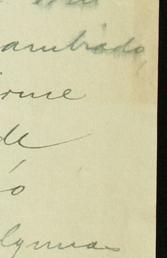 ambiado,
irme
de
ó
lgunas